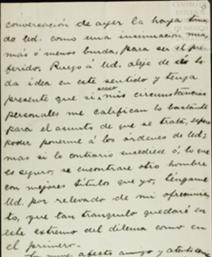 conversación de ayer la haya toma-
do Ud. como una insinuación mia,
más ó menos burda, para ser el pre-
ferido. Ruego á Ud. aleje de si to-
da idea en este sentido y tenga
presente que si mis circunstancias
personales me califican lo bastante
para el asunto de que se trata, espero
poder ponerme á las órdenes de Ud;
mas si lo contrario sucediese ó, lo que
es seguro, se encontrare otro hombre
con mejores títulos que yo, téngame
Ud. por relevado de mi ofrecimien-
to, que tan tranquilo quedaré en
este extremo del dilema como en
el primero.
afecto amigo y